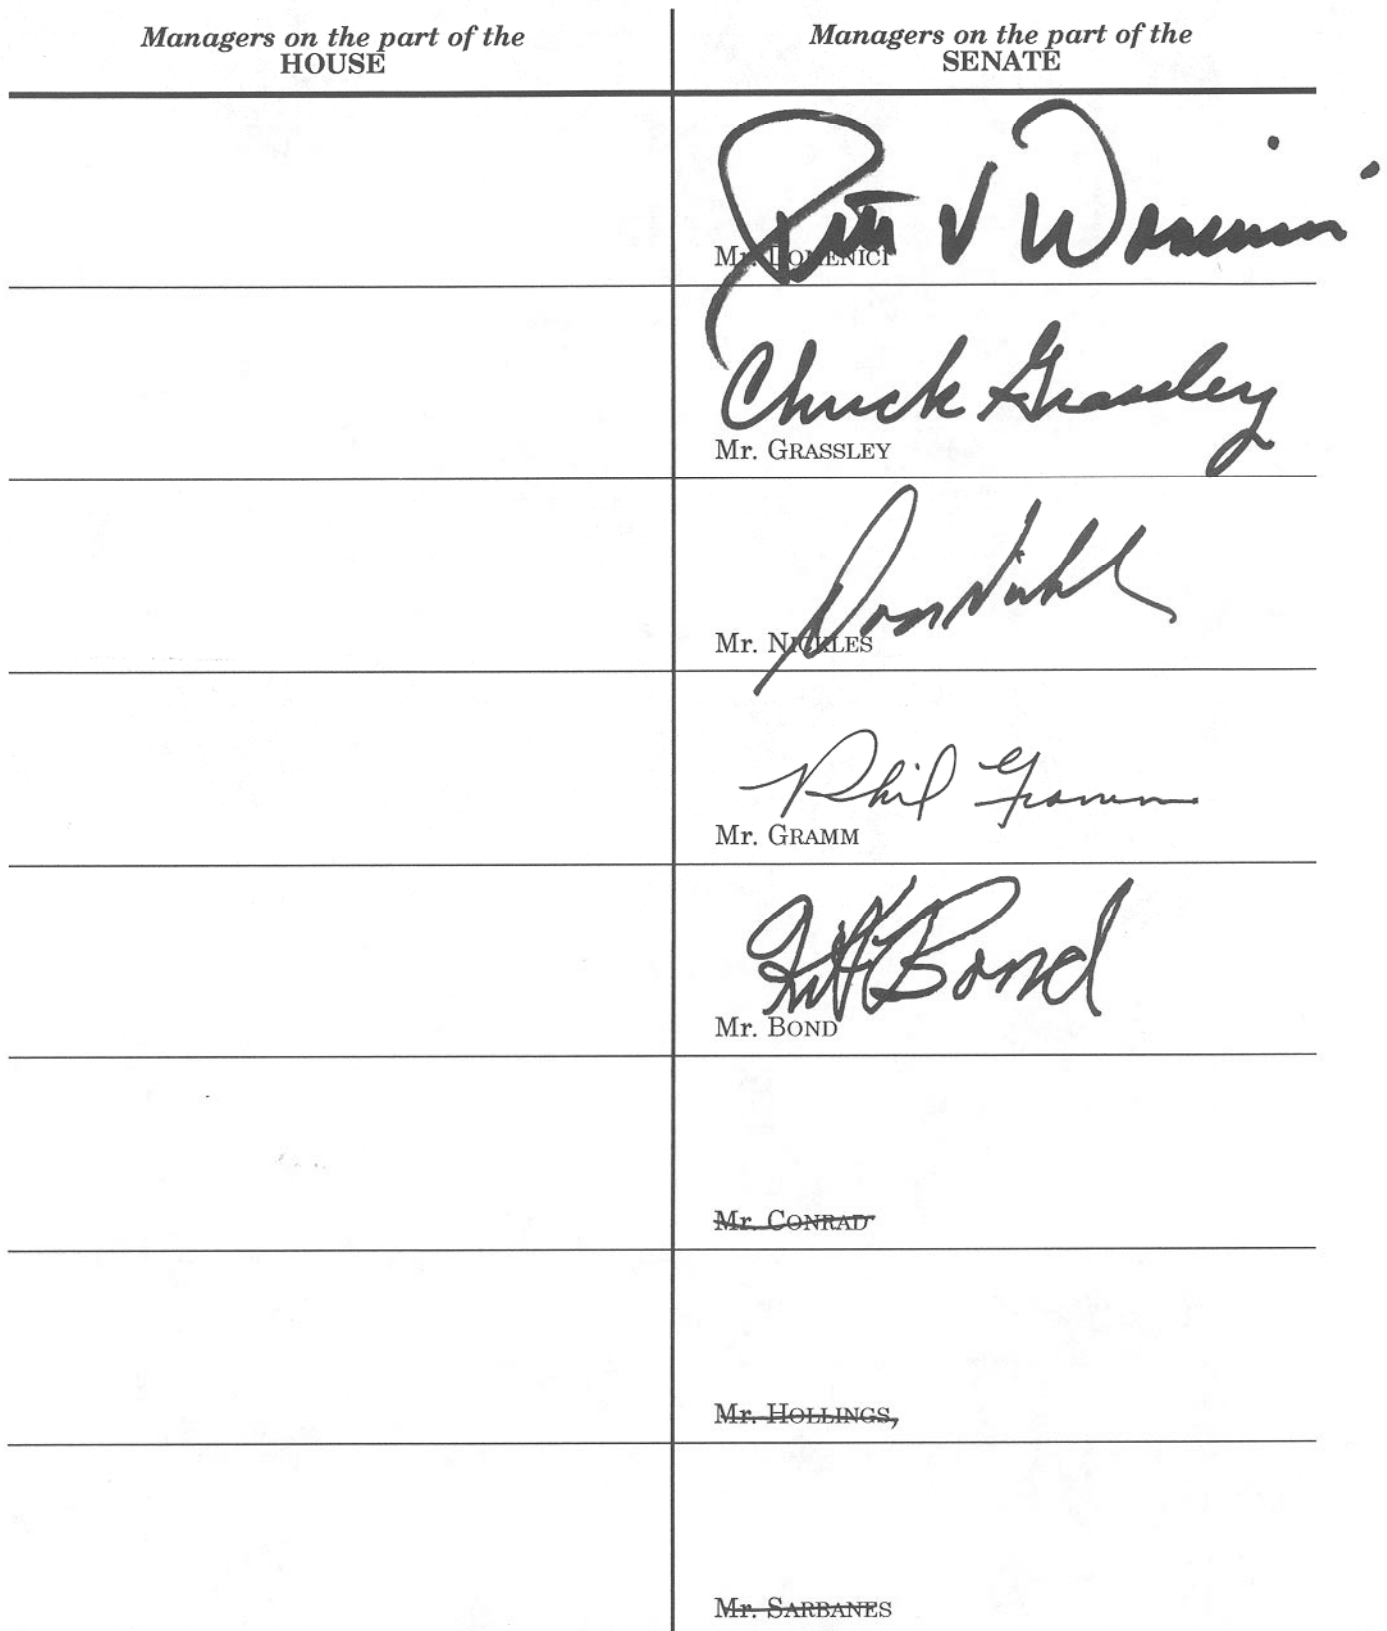 Managers on the part of the
HOUSE
Managers on the part of the
SENATE
Pete V Domenici
Mr. DOMENICI
Chuck Grassley
Mr. GRASSLEY
Don Nickles
Mr. NICKLES
Phil Gramm
Mr. GRAMM
Kit Bond
Mr. BOND
Mr. CONRAD
Mr. HOLLINGS,
Mr. SARBANES